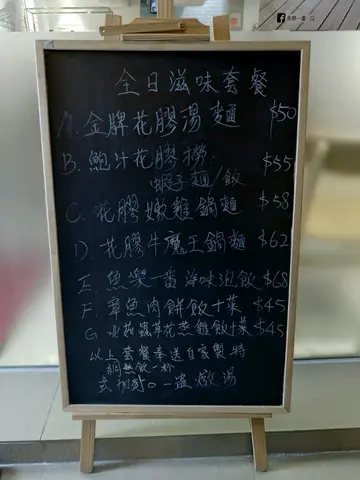 全日滋味套餐
A. 金牌花膠湯麵 $50
B. 鮑汁花膠撈
蝦子麵/飯 $55
C. 花膠嫩雞鍋麵 $58
D. 花膠牛魔王鍋麵 $62
E. 魚樂一番海味泡飯 $68
F. 章魚肉餅飯+菜 $45
G. 北菇蟲草花蒸雞飯+菜 $45
以上套餐奉送自家製特
調熱飲一杯
式加$10 一盅燉湯